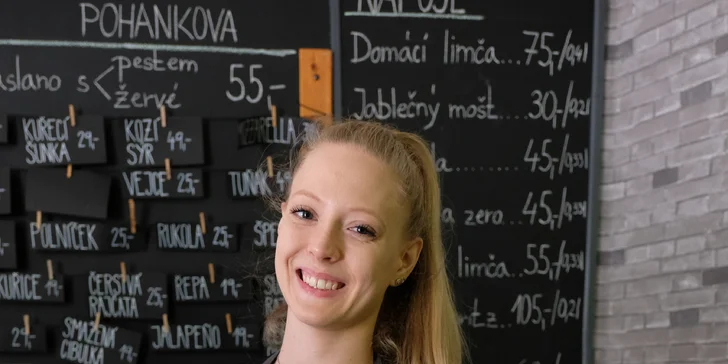 POHANKOVÁ
máslano s
pestem
žervé
55,-
KUŘECÍ ŠUNKA 29,-
KOZÍ SÝR 49,-
VEJCE 25,-
TUŇÁK
POLNÍČEK 25,-
RUKOLA 25,-
KUŘECÍ 19,-
ČERSTVÁ RAJČATA 25,-
ŘEPA 19,-
21,-
SMAŽENÁ CIBULKA 19,-
JALAPEÑO 19,-
NÁPOJE
Domácí limča...75,-/0,4l
Jablečný mošt...30,-/0,2l
45,-/0,33l
zero...45,-/0,33l
limča...55,-/0,33l
105,-/0,2l